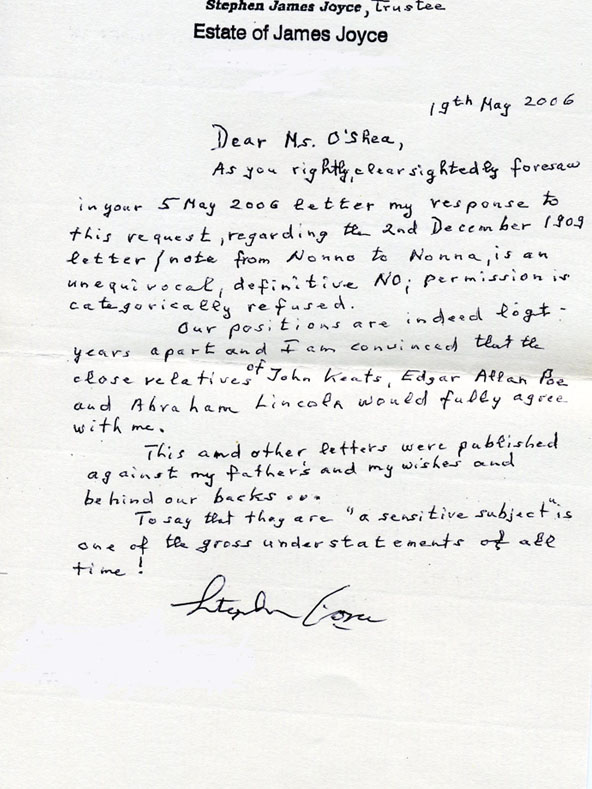 Stephen James Joyce, Trustee
Estate of James Joyce
19th May 2006
Dear Ms. O'Shea,
As you rightly, clearsightedly foresaw
in your 5 May 2006 letter my response to
this request, regarding the 2nd December 1909
letter/note from Nonno to Nonna, is an
unequivocal, definitive NO; permission is
categorically refused.
Our positions are indeed lôgt-
years apart and I am convinced that the
close relatives of John Keats, Edgar Allan Poe
and Abraham Lincoln would fully agree
with me.
This and other letters were published
against my father's and my wishes and
behind our backs ...
To say that they are "a sensitive subject" is
one of the gross understatements of all
time!
Stephen Joyce